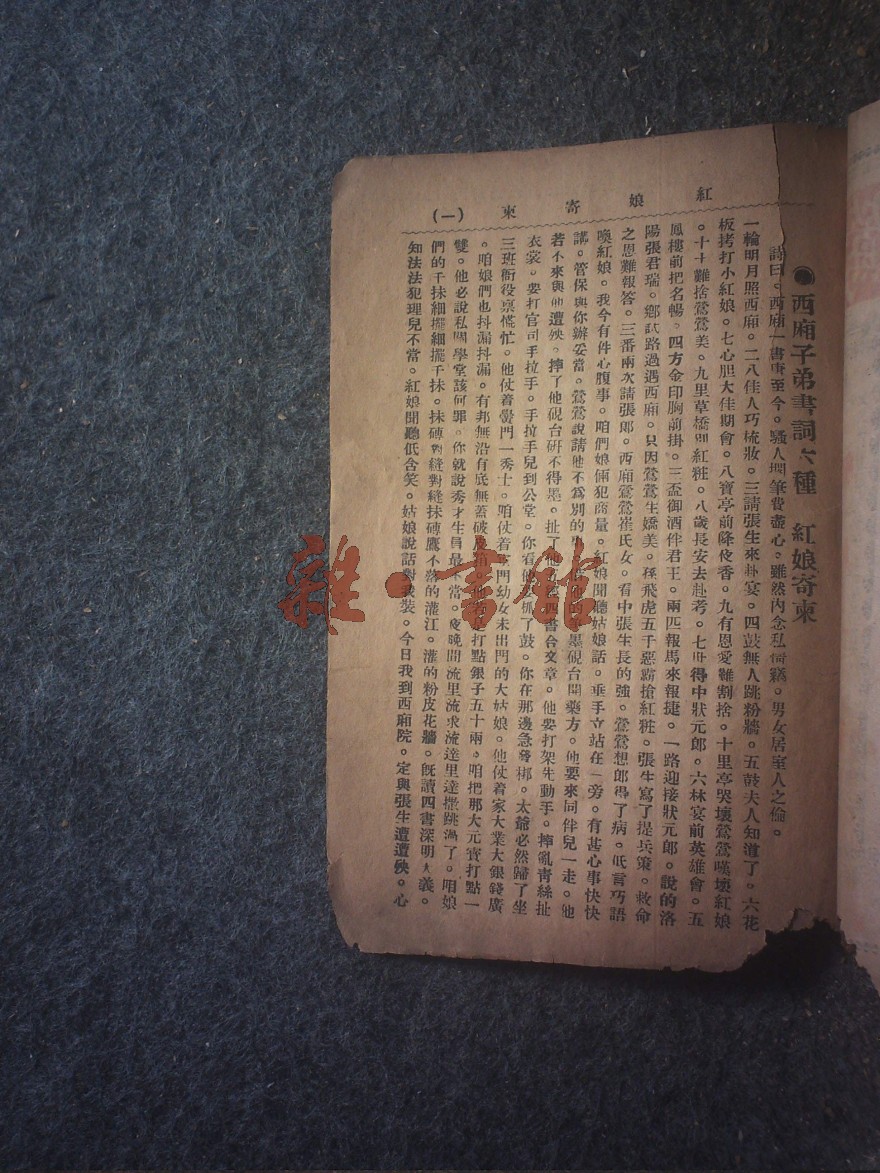 紅娘寄柬 (一)
◉西廂子弟書詞六種 紅娘寄柬
詩曰。西廂一書至今。騷人筆費盡心。雖然內念私情。男女居室人之倫。
一輪明月照西廂。二八佳人巧梳妝。三請張生來赴宴。四鼓無人跳粉牆。五鼓夫人知道了。六花
板拷打小紅娘。七心胆大佳期會。八寶亭前降夜香。九有恩愛難割捨。十里亭哭壞鶯鶯嘆壞紅娘
。十十難捨鶯鶯美。九里草橋別紅粧。八歲長安去赴考。七中狀元郎。六林宴前英雄會。五
鳳樓前把名暢。四方金印胸前掛。三盃御酒伴君王。兩匹報馬來報捷。一路迎接狀元郎。說的洛
陽張君瑞。鄉試路過遇西廂。只因鶯鶯生嬌美。孫飛虎五千惡霸搶紅粧。張生寫了提兵策。救命
之恩難報答。三番兩次請張郎。西廂鶯鶯崔氏女。看中張生長的強。鶯鶯想郎得了病。低言巧語
喚紅娘。我今有件心腹事。咱們娘倆犯商量。紅娘聞聽姑娘話。垂手立站在一旁。有甚心事快快
講。管保與你辦妥當。鶯鶯說請他不爲別的墨硯台開藥方。他要來同伴兒一走。他
若不來與他遭殃。摔了他硯台研不得墨。扯了他四書合文章。他要打架先動手。摔亂青絲扯
衣裳。要打官司手拉手。手拉手兒到公堂。你看他抓了鼓。你在那邊急忙梆。太爺必然歸了坐
三班衙役禀慌忙。他仗着黌門一秀士。咱仗着門幼女未出門的大姑娘。他仗着家大業大銀錢廣
。咱娘們也抖漏抖漏。有邦無沿有底無蓋破打點銀子五十兩。咱把那大元寶打點一
雙。他必說私闖學堂該何罪。你就說秀才生員最不當。夜晚間流里流求流達里達撒跳過了。咱娘
們的千抹細擺細擺千抹。抹磚對縫對縫抹磚鷹不落的灌江。灌的粉皮花牆。既讀四書深明大義。
知法法犯理兒不當。紅娘聞聽低含笑。姑娘說話對我裝。今日我到西廂院。定與張生遭遭殃。心
雜·書館